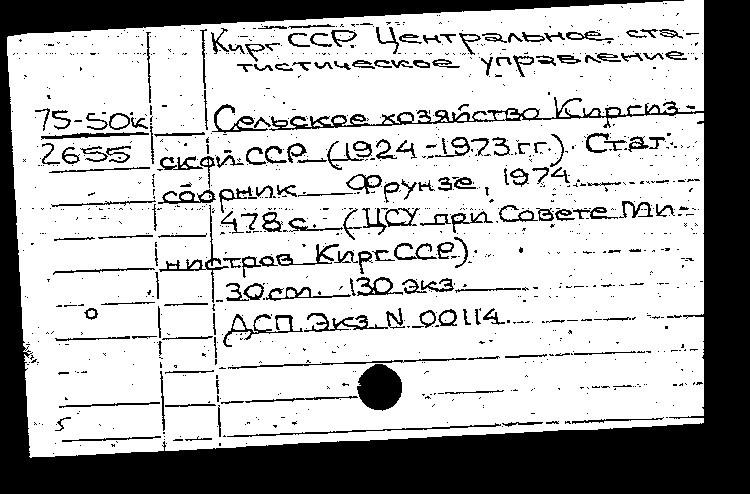 Кирг ССР. Центральное ста-
тистическое управление.
75-50к Сельское хозяйство Киргиз-
2655 ской ССР (1924-1973 гг.). Стат.
сборник. Фрунзе, 1974.
478 с. (ЦСУ при Совете Ми-
нистров Кирг ССР).
30 см. 130 экз.
ДСП. Экз. N 00114.
5